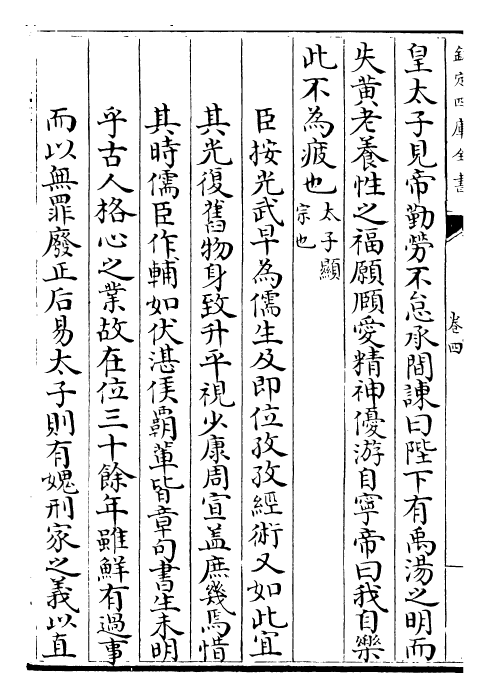 欽定四庫全書
卷四
皇太子見帝勤勞不怠承間諫曰陛下有禹湯之明而
失黄老養性之福願頥愛精神優游自寧帝曰我自樂
此不為疲也太子顯
宗也
臣按光武早為儒生及即位孜孜經術又如此宜
其光復舊物身致升平視少康周宣盖庶幾焉惜
其時儒臣作輔如伏湛侯霸軰皆章句書生未明
乎古人格心之業故在位三十餘年雖鮮有過事
而以無罪廢正后易太子則有媿刑家之義以直